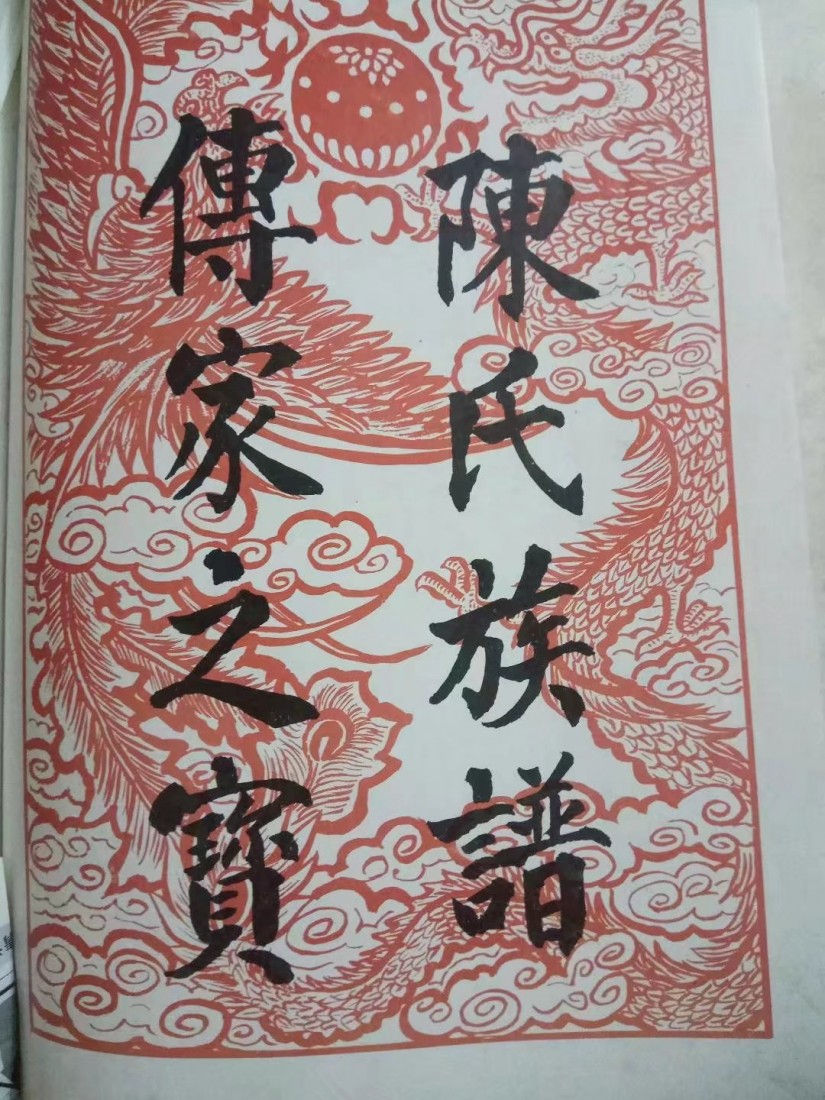 陳氏族譜
傳家之寶